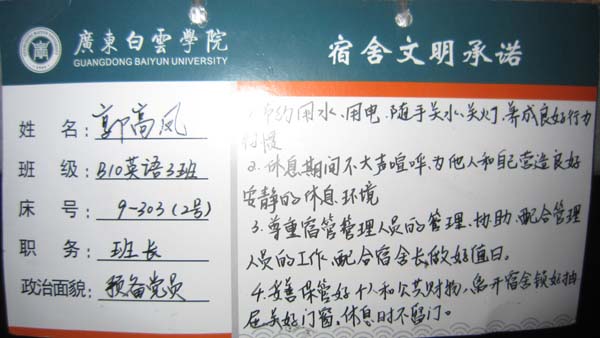 廣東白雲學院
GUANGDONG BAIYUN UNIVERSITY
姓 名: 郭高风
班 级: B10英语3班
床 号: 9-303(2号)
职 务: 班长
政治面貌: 预备党员
宿舍文明承诺
1.节约用水、用电、随手关水、关灯,养成良好行为
习惯
2.休息期间不大声喧哗,为他人和自己营造良好
安静的休息环境
3.尊重宿管管理人员的管理、协助、配合管理
人员的工作、配合宿舍长做好值日。
4.妥善保管好个人和公共财物,离开宿舍锁好抽
屉关好门窗、休息时不窜门。